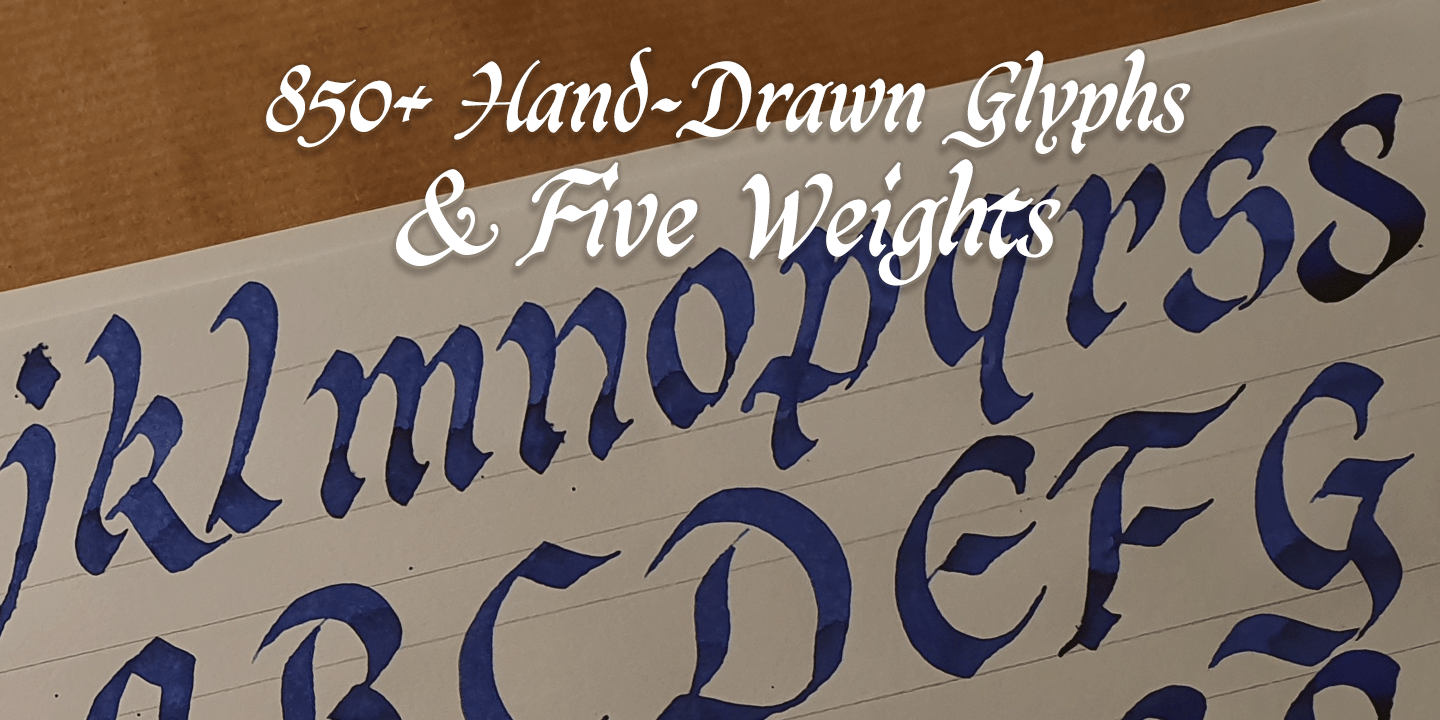 850+ Hand-Drawn Glyphs
& Five Weights
jklmnopqrss
ABCDEFG